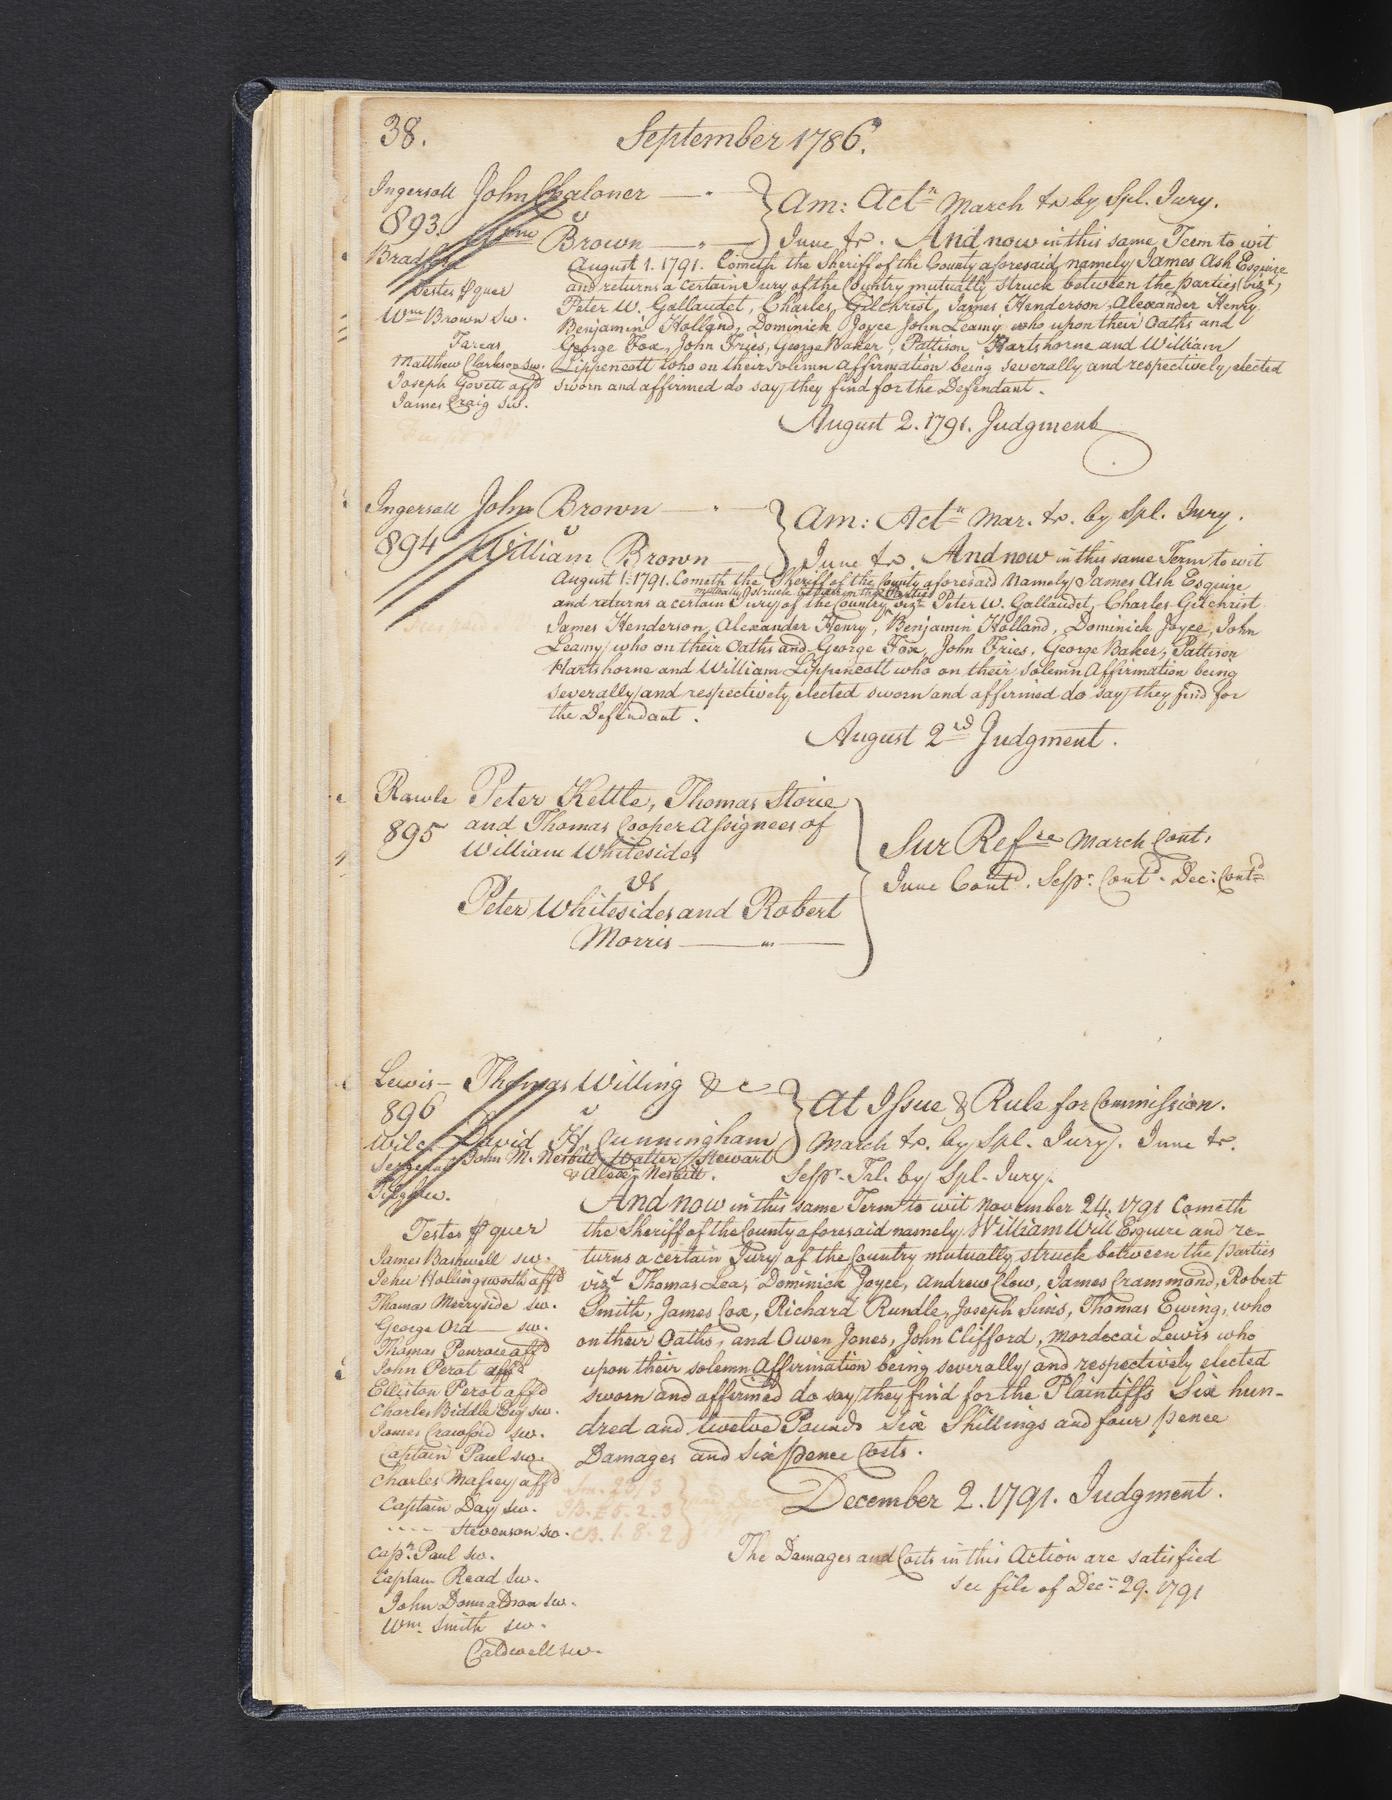 38.
September 1786.
Ingersoll John Chaloner
893.
v
Wm Brown
Bradford
Am: Actn March tr by Spl. Jury.
June tr. And now in this same Term to wit
August 1. 1791. Cometh the Sheriff of the County aforesaid namely James Ash Esquire
and returns a certain Jury of the Country mutually struck between the parties (vizt)
Peter W. Gallaudet, Charles Gilchrist, James Henderson, Alexander Henry
Benjamin Holland, Dominick Joyce John Leamy who upon their Oaths and
George Fox, John Fries, George Baker, Pattison Hartshorne and William
Lippencott who on their solemn Affirmation being severally and respectively elected
sworn and affirmed do say they find for the Defendant.
August 2. 1791. Judgment
Testes pquer
Wm Brown Sw.
Matthew Clarkson sw.
Joseph Govett affd
James Craig sw.
Ingersoll John Brown
894
v
William Brown
Am: Actn Mar. tr. by Spl. Jury.
June tr. And now in this same Term to wit
August 1. 1791. Cometh the Sheriff of the County aforesaid Namely James Ash Esquire
mutually struck between the parties
and returns a certain Jury of the Country vizt Peter W. Gallaudet, Charles Gilchrist
James Henderson, Alexander Henry, Benjamin Holland, Dominick Joyce, John
Leamy who on their Oaths and George Fox, John Fries, George Baker, Pattison
Hartshorne and William Lippencott who on their solemn Affirmation being
severally and respectively elected sworn and affirmed do say they find for
the Defendant.
August 2nd Judgment.
Rawle Peter Kettle, Thomas Storie
895 and Thomas Cooper Assignees of
William Whitesides
vs
Peter Whitesides and Robert
Morris
Sur Refce March Cont.
June Contd. Sepr. Contd. Dec: Contd
Lewis Thomas Willing &c
896
v
Wilc David H. Cunningham
Sergeant John M. Nesbitt Walter Stewart
& Alexr Nesbitt.
Tilghw.
At Issue & Rule for Commission.
March tr. by Spl. Jury. June tr.
Sepr. Trl. by Spl. Jury.
And now in this same Term to wit November 24. 1791 Cometh
the Sheriff of the County aforesaid namely William Will Esquire and re-
turns a certain Jury of the Country mutually struck between the parties
vizt Thomas Lea, Dominick Joyce, Andrew Clow, James Crammond, Robert
Smith, James Cox, Richard Rundle, Joseph Sims, Thomas Ewing, who
on their Oaths, and Owen Jones, John Clifford, Mordecai Lewis who
upon their solemn Affirmation being severally and respectively elected
sworn and affirmed do say they find for the Plaintiffs Six hun-
dred and twelve Pounds six Shillings and four pence
Damages and six pence Costs.
December 2. 1791. Judgment.
The Damages and Costs in this Action are satisfied
see file of Decr. 29. 1791
Testes pquer
James Bashwell sw.
Jehu Hollingsworth affd
Thomas Merryside sw.
George Ord sw.
Thomas Penrose affd
John Perot affd
Elliston Perot affd
Charles Biddle Esq sw.
James Crawford sw.
Captain Paul sw.
Charles Massey affd
Captain Day sw.
---- Stevenson sw.
Capn. Paul sw.
Captain Read sw.
John Donnaldson sw.
Wm. Smith sw.
Caldwell sw.